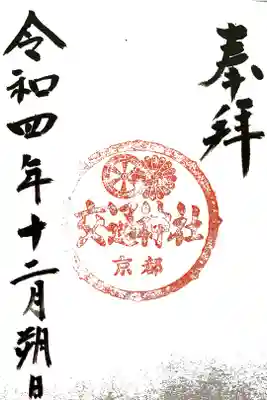 奉拝
交通神社
京都
令和四年十二月朔日